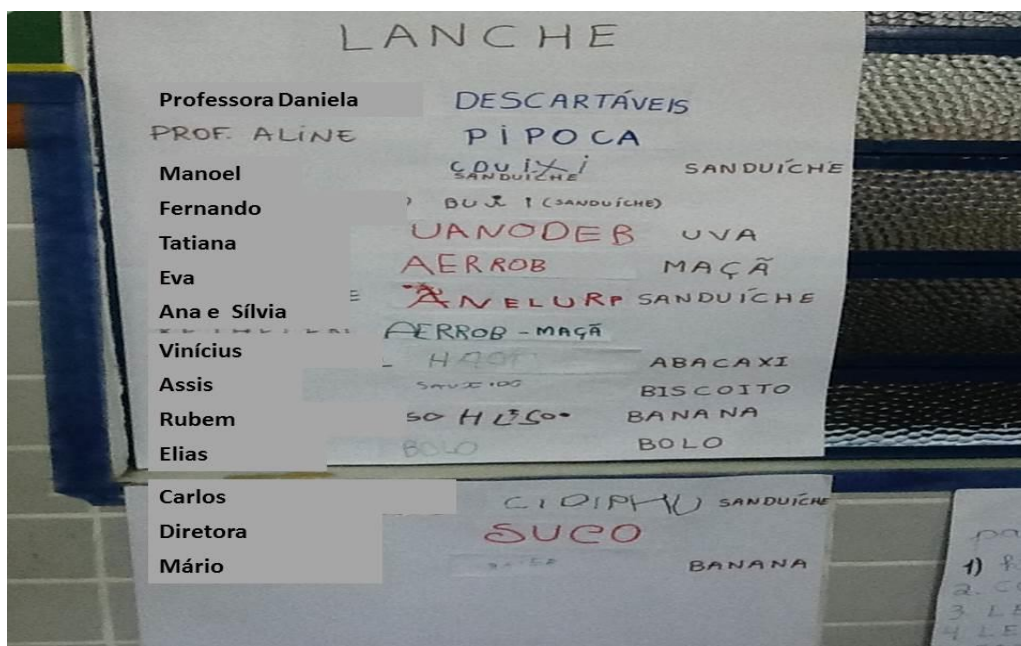 LANCHE
Professora Daniela DESCARTÁVEIS
PROF. ALINE PIPOCA
Manoel SANDUÍCHE SANDUÍCHE
Fernando (SANDUÍCHE)
Tatiana UANODEB UVA
Eva AERROB MAÇÃ
Ana e Sílvia ANELURP SANDUÍCHE
AERROB - MAÇÃ
Vinícius ABACAXI
Assis BISCOITO
Rubem BANANA
Elias BOLO BOLO
Carlos SANDUÍCHE
Diretora SUCO
Mário BANANA
1)
2.
3 LE
4 LE